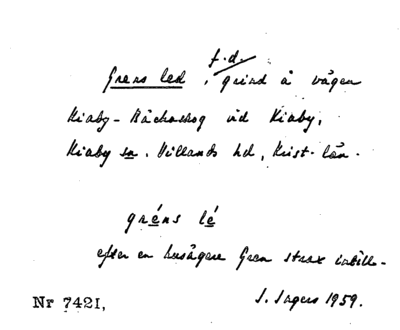 f.d.
Grens led, grind å vägen
Kiaby-Bäckaskog vid Kiaby,
Kiaby sn. Villands hd, Krist. län.
gréns lé
efter en husägare Gren strax intill.
Nr 7421, J. Ingers 1959.